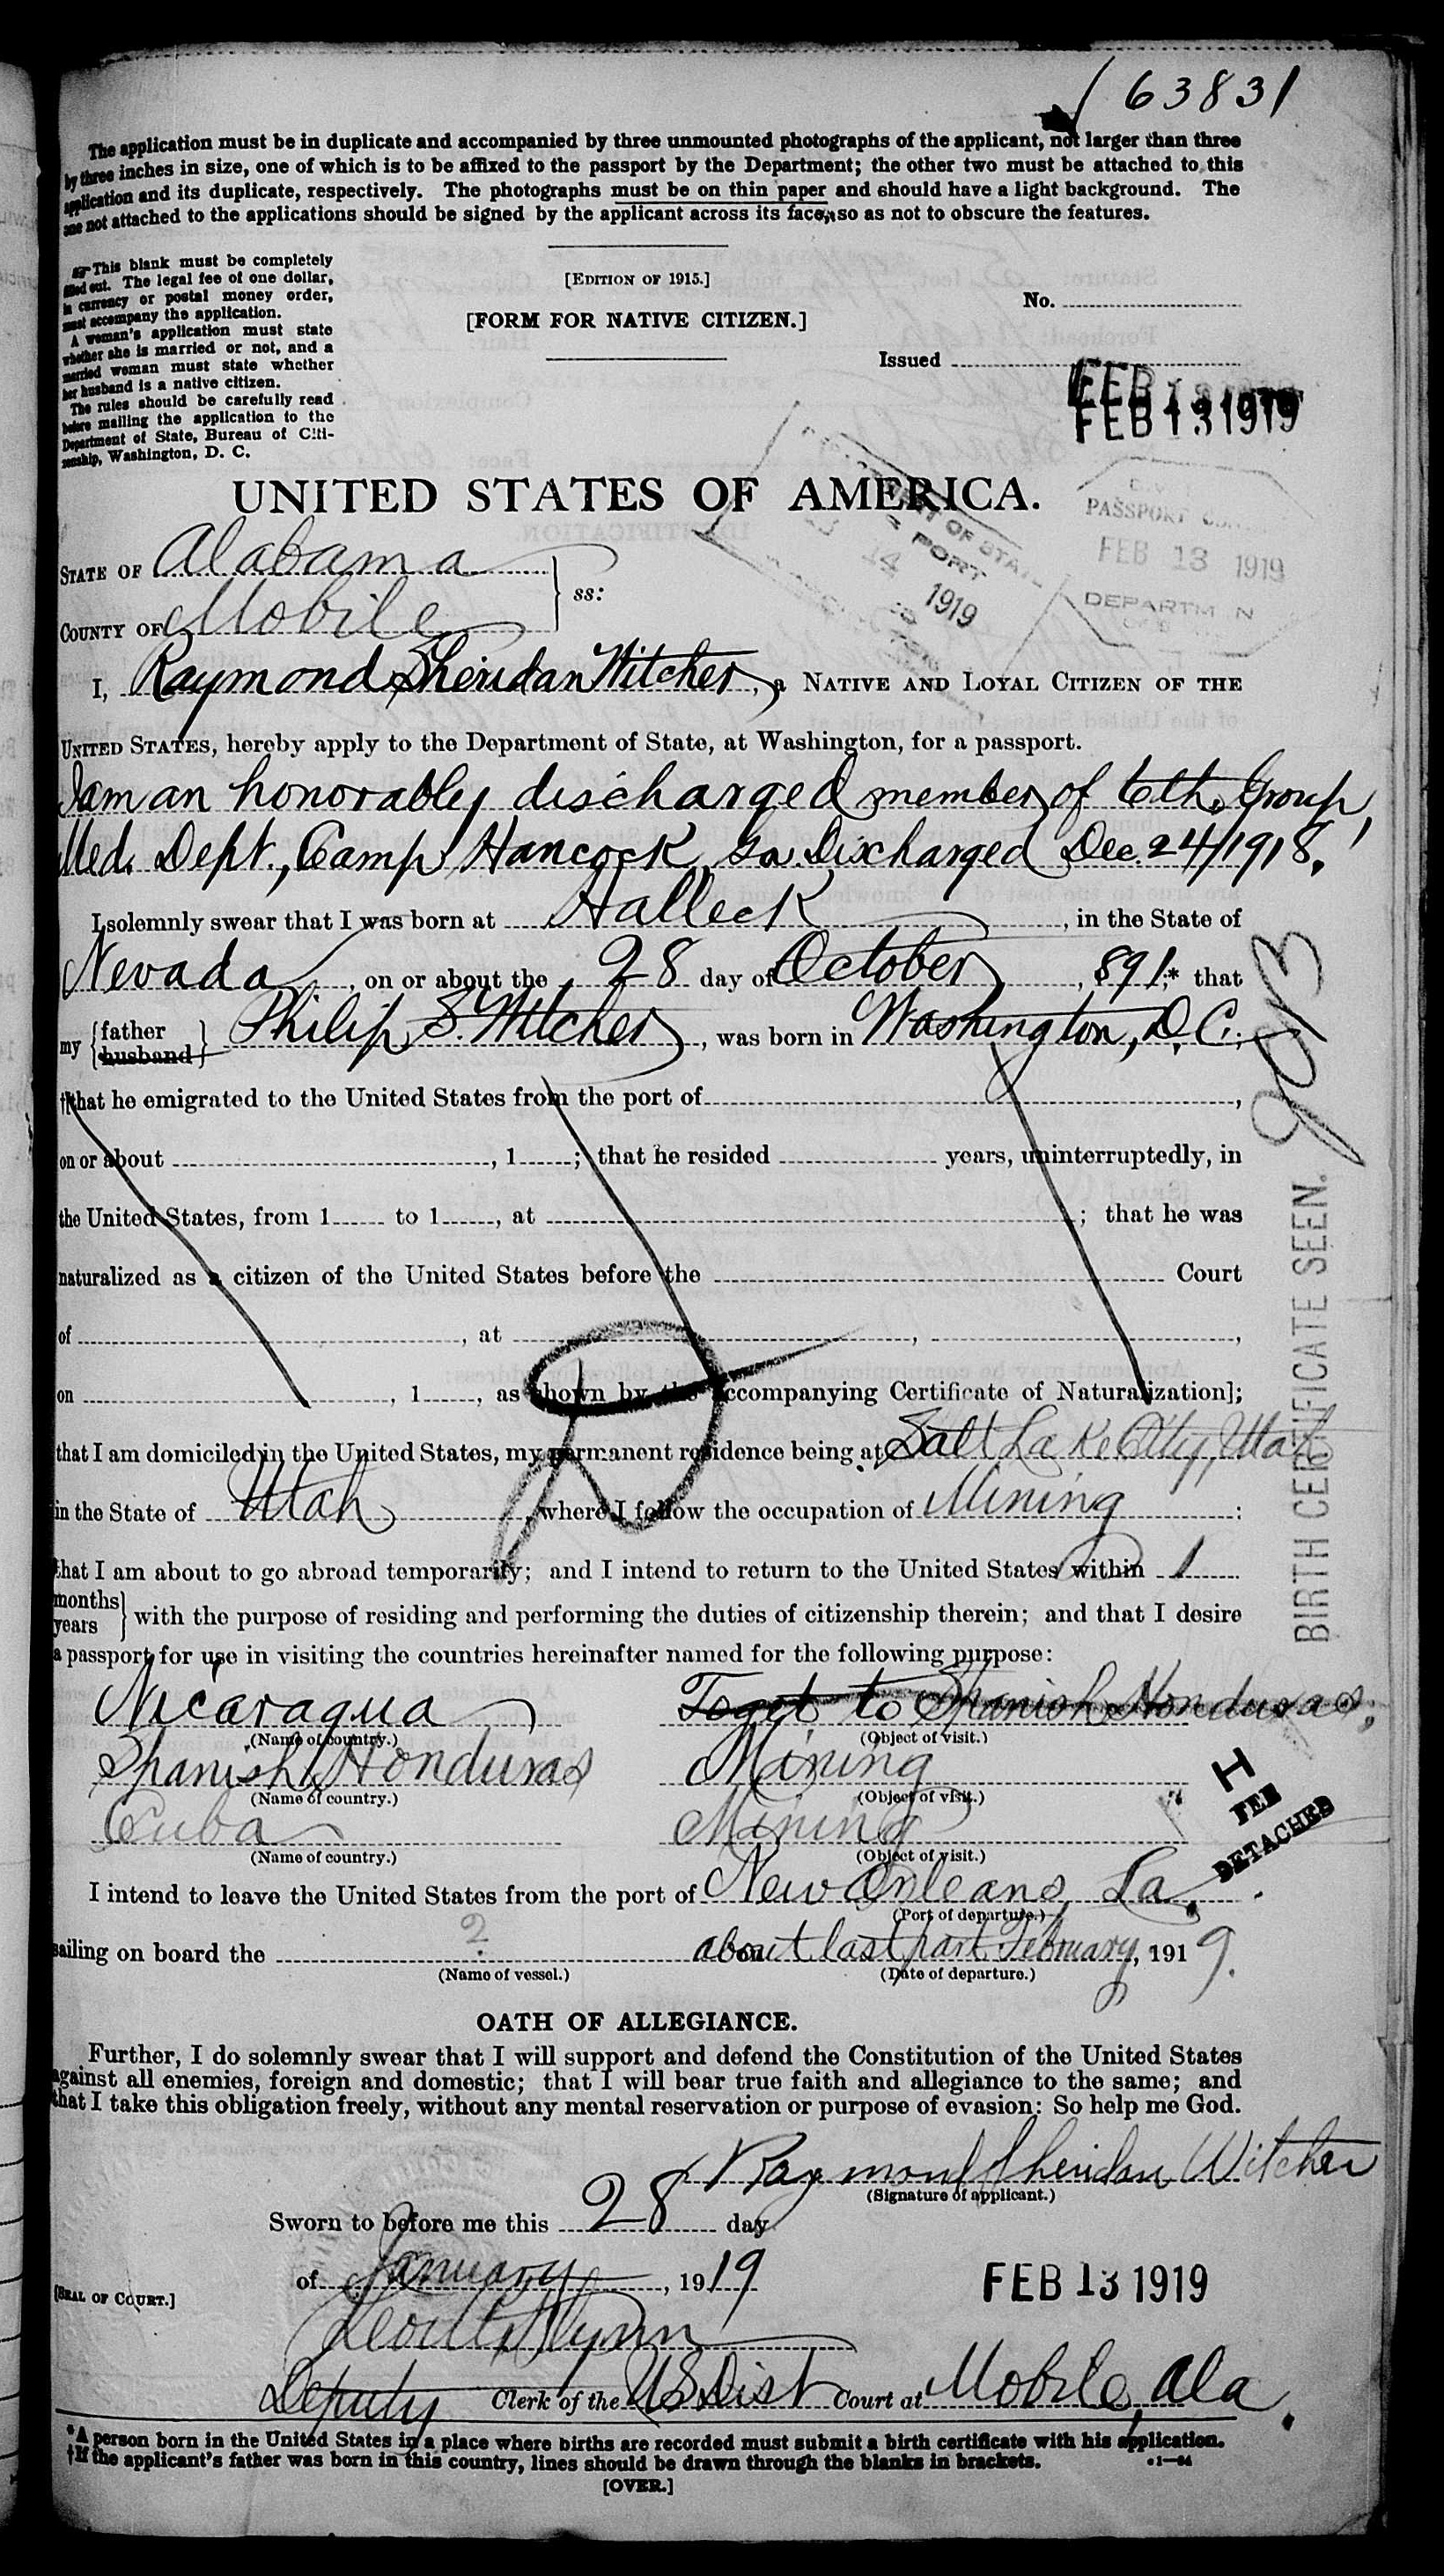 63831
The application must be in duplicate and accompanied by three unmounted photographs of the applicant, not larger than three
by three inches in size, one of which is to be affixed to the passport by the Department; the other two must be attached to this
application and its duplicate, respectively. The photographs must be on thin paper and should have a light background. The
one not attached to the applications should be signed by the applicant across its face, so as not to obscure the features.
☞This blank must be completely
filled out. The legal fee of one dollar,
in currency or postal money order,
must accompany the application.
A woman's application must state
whether she is married or not, and a
married woman must state whether
her husband is a native citizen.
The rules should be carefully read
before mailing the application to the
Department of State, Bureau of Citi-
zenship, Washington, D. C.
[EDITION OF 1915.]
[FORM FOR NATIVE CITIZEN.]
No.
Issued
FEB 13 1919
UNITED STATES OF AMERICA.
PASSPORT
FEB 13 1919
1919
STATE OF Alabama
COUNTY OF Mobile
ss:
I, Raymond Sheridan Witcher, a NATIVE AND LOYAL CITIZEN OF THE
UNITED STATES, hereby apply to the Department of State, at Washington, for a passport.
I am an honorably discharged member of 6th. Group,
Med. Dept., Camp Hancock, Ga. Discharged Dec. 24/1918.
I solemnly swear that I was born at Halleck, in the State of
Nevada, on or about the 28 day of October, 891;* that
my {father husband} Philip S. Witcher, was born in Washington, D.C.;
†[that he emigrated to the United States from the port of ,
on or about , 1 ; that he resided years, uninterruptedly, in
the United States, from 1 to 1 , at ; that he was
naturalized as a citizen of the United States before the Court
of , at , ,
on , 1 , as shown by the accompanying Certificate of Naturalization];
that I am domiciled in the United States, my permanent residence being at Salt Lake City, Utah
in the State of Utah, where I follow the occupation of Mining;
that I am about to go abroad temporarily; and I intend to return to the United States within 1
{months years} with the purpose of residing and performing the duties of citizenship therein; and that I desire
a passport for use in visiting the countries hereinafter named for the following purpose:
Nicaragua To get to Spanish Honduras;
(Name of country.) (Object of visit.)
Spanish Honduras Mining
(Name of country.) (Object of visit.)
Cuba Mining
(Name of country.) (Object of visit.)
I intend to leave the United States from the port of New Orleans, La.
(Port of departure.)
sailing on board the ? about last part February, 1919.
(Name of vessel.) (Date of departure.)
BIRTH CERTIFICATE SEEN.
H
FEE
DETACHED
OATH OF ALLEGIANCE.
Further, I do solemnly swear that I will support and defend the Constitution of the United States
against all enemies, foreign and domestic; that I will bear true faith and allegiance to the same; and
that I take this obligation freely, without any mental reservation or purpose of evasion: So help me God.
Raymond Sheridan Witcher
(Signature of applicant.)
Sworn to before me this 28 day
of January, 1919
FEB 13 1919
[SEAL OF COURT.]
Deputy Clerk of the US Dist Court at Mobile, Ala.
*A person born in the United States in a place where births are recorded must submit a birth certificate with his application.
†If the applicant's father was born in this country, lines should be drawn through the blanks in brackets.
[OVER.]